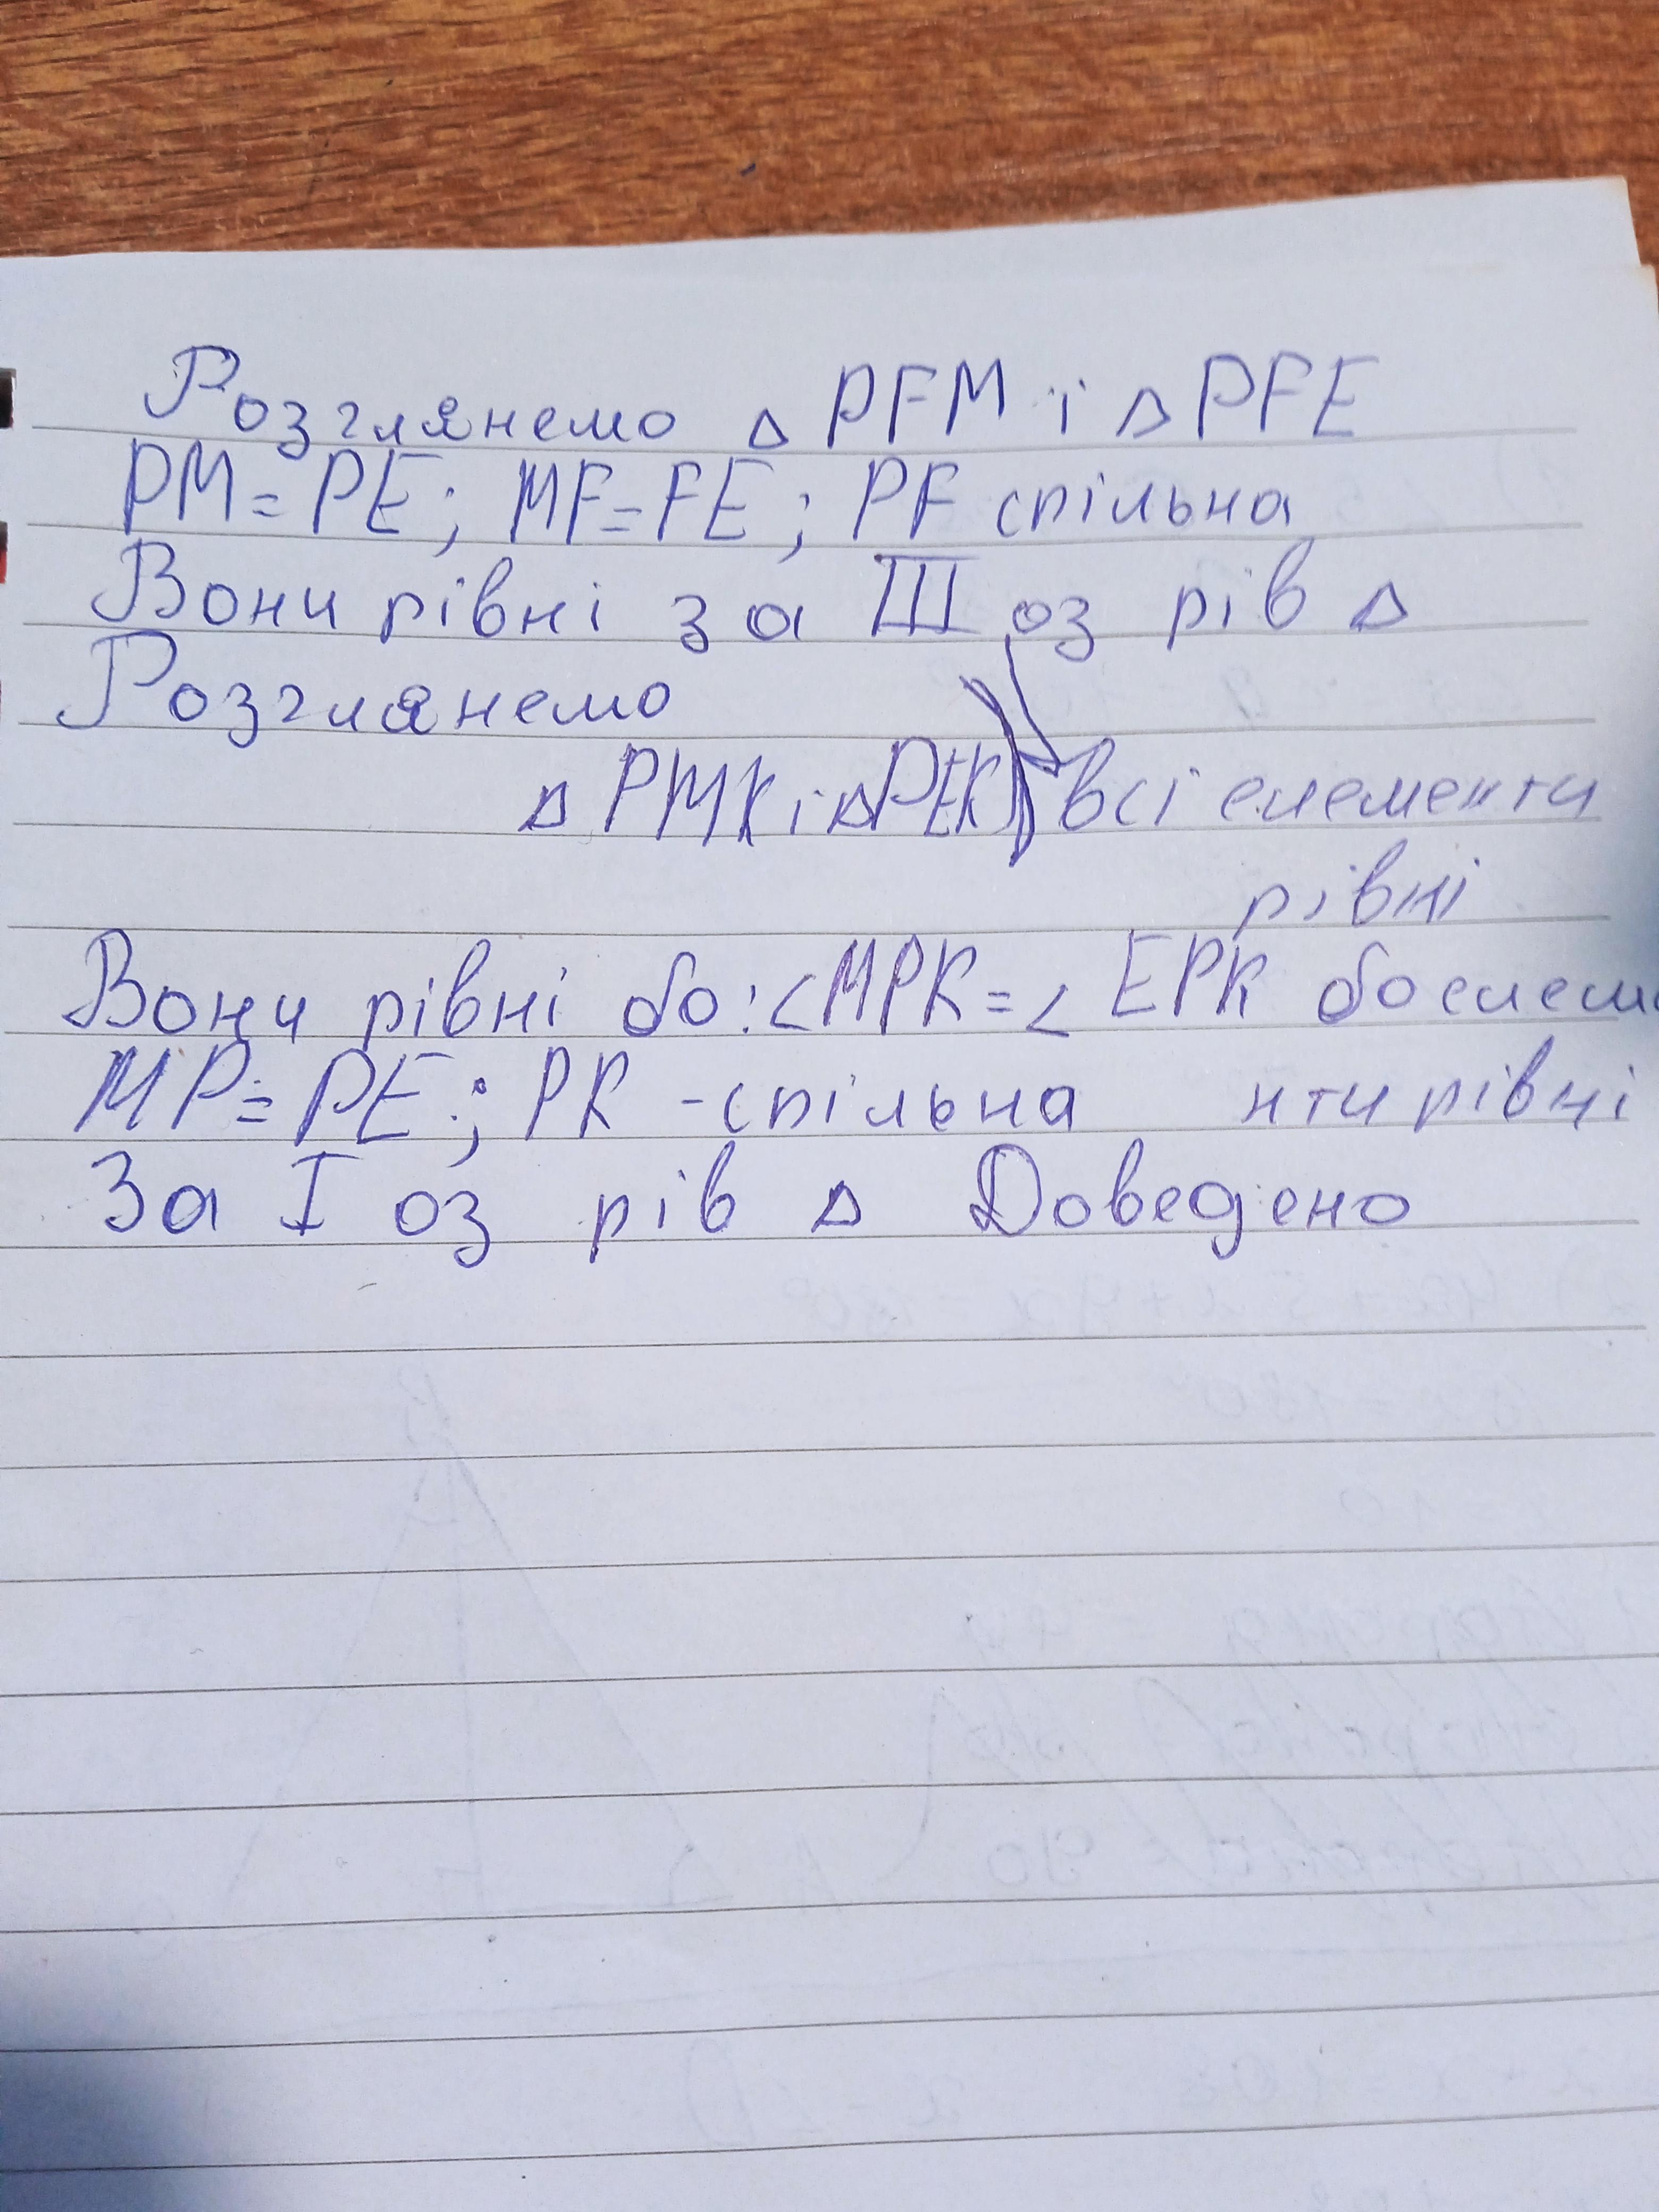 Розглянемо △ PFM і △ PFE
PM = PE; MF = FE; PF спільна
Вони рівні за III оз рів △
Розглянемо
△ PMK і △ PEK всі елементи
рівні
Вони рівні бо: <MPK = < EPK бо елеме
MP = PE; PK - спільна нти рівні
За I оз рів △ Доведено